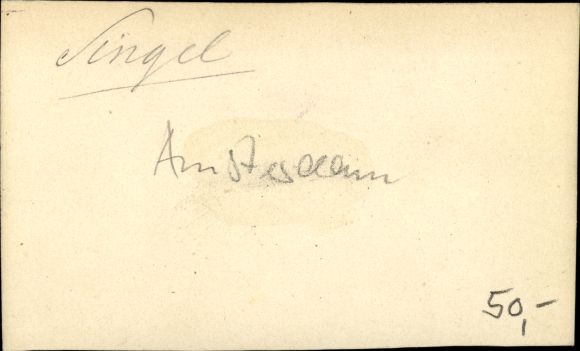 Singel
Amsterdam
50,-